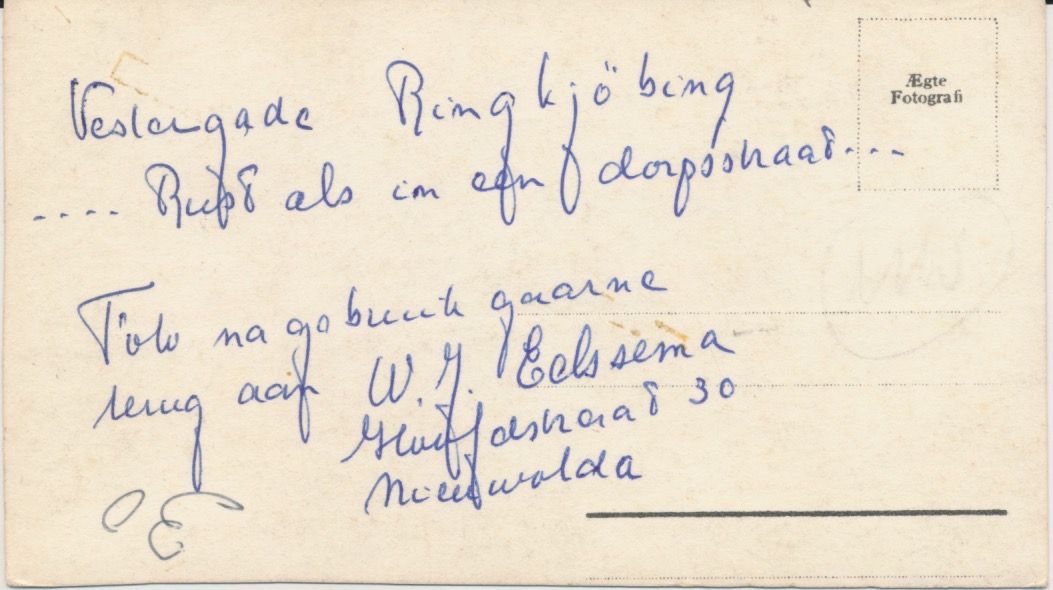 Ægte
Fotografi
Vestergade Ringkjöbing
.... Rust als in een dorpsstraat....
Foto na gebruik gaarne
terug aan W.J. Eelssema
Hoofdstraat 30
Nieuwolda